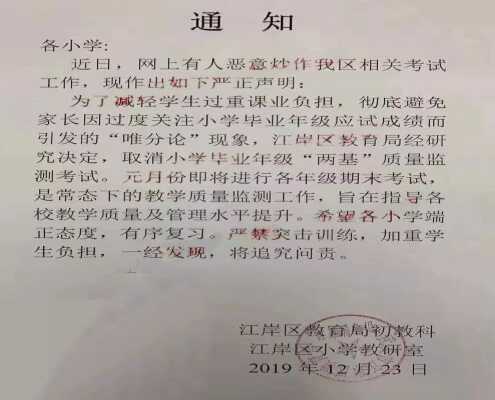 通 知
各小学:
近日，网上有人恶意炒作我区相关考试
工作，现作出如下严正声明：
为了减轻学生过重课业负担，彻底避免
家长因过度关注小学毕业年级应试成绩而
引发的“唯分论”现象，江岸区教育局经研
究决定，取消小学毕业年级“两基”质量监
测考试。元月份即将进行各年级期末考试，
是常态下的教学质量监测工作，旨在指导各
校教学质量及管理水平提升。希望各小学端
正态度，有序复习。严禁突击训练，加重学
生负担，一经发现，将追究问责。
江岸区教育局初教科
江岸区小学教研室
2019 年 12 月 23 日